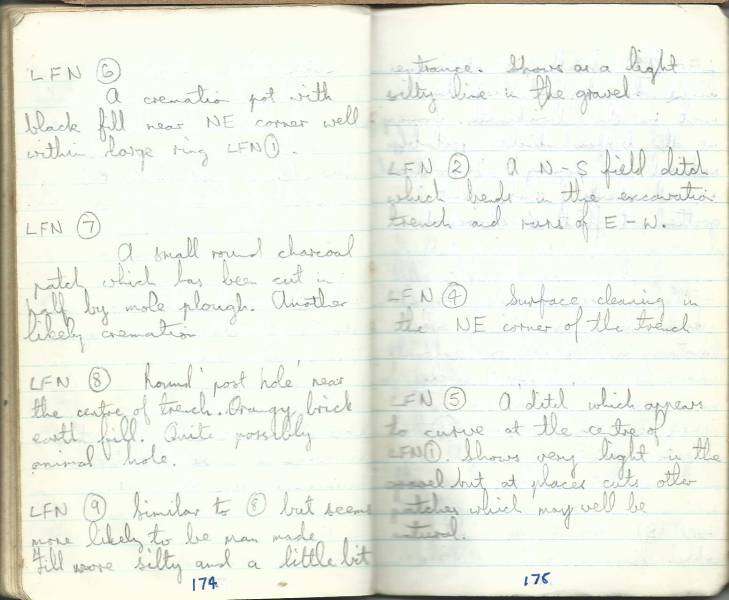 LFN ⑥
A cremation pot with
black fill near NE corner well
within large ring LFN ①.
LFN ⑦
A small round charcoal
patch which has been cut in
half by mole plough. Another
likely cremation
LFN ⑧ Round 'post hole' near
the centre of trench. Orangy brick
earth fill. Quite possibly
animal hole.
LFN ⑨ Similar to ⑧ but seems
more likely to be man made
Fill more silty and a little bit
174
entrance. Shows as a light
silty line in the gravel.
LFN ② A N-S field ditch
which bends in the excavation
trench and runs of E-W.
LFN ④ Surface cleaning in
the NE corner of the trench
LFN ⑤ A 'ditch' which appears
to curve at the centre of
LFN ①. Shows very light in the
gravel but at places cuts other
patches which may well be
natural.
175